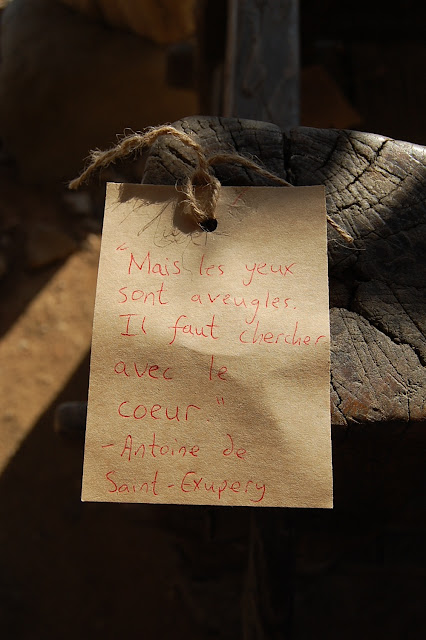 "Mais les yeux
sont aveugles.
Il faut chercher
avec le
coeur"
-Antoine de
Saint-Exupery